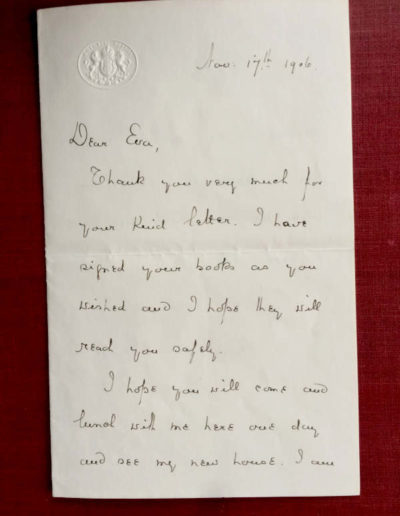 Nov. 17th 1906.
Dear Eva,
Thank you very much for
your kind letter. I have
signed your books as you
wished and I hope they will
read you safely.
I hope you will come and
lunch with me here one day
and see my new house. I am